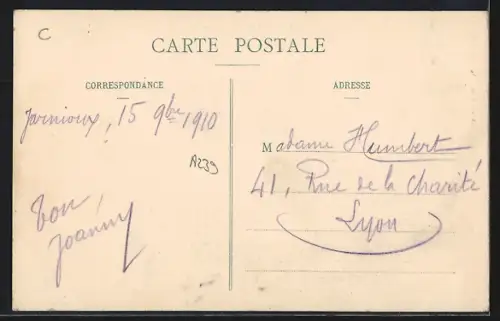 C
CARTE POSTALE
CORRESPONDANCE
ADRESSE
Jarnioux, 15 9bre 1910
A239
Madame Humbert
41, Rue de la Charité
Lyon
Ton
Joanny